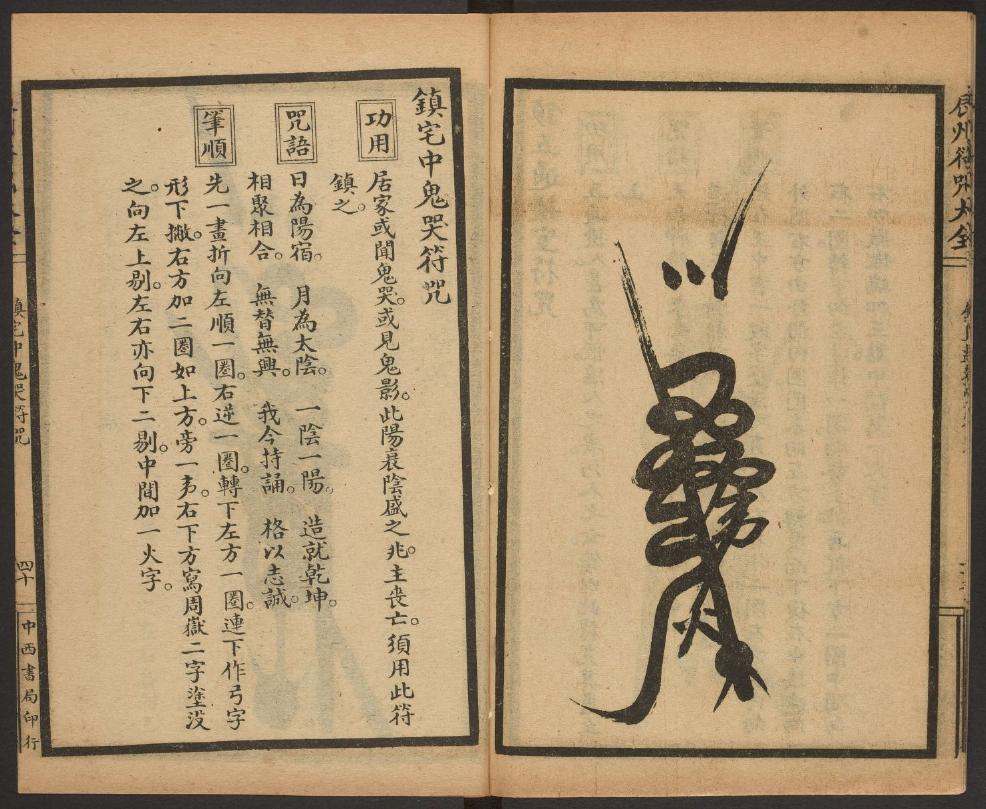 辰州符咒大全
鎮宅中鬼哭符咒
功用
居家或聞鬼哭。或見鬼影。此陽衰陰盛之兆。主喪亡。須用此符
鎮之。
咒語
日為陽宿。月為太陰。一陰一陽。造就乾坤。
相聚相合。無替無興。我今持誦。格以志誠。
筆順
先一畫折向左順一圈。右逆一圈。轉下左方一圈。連下作弓字
形下撇。右方加二圈如上方。旁一夛。右下方寫周嶽二字塗沒
之。向左上剔。左右亦向下二剔。中間加一火字。
鎮宅中鬼哭符咒
四十
中西書局印行